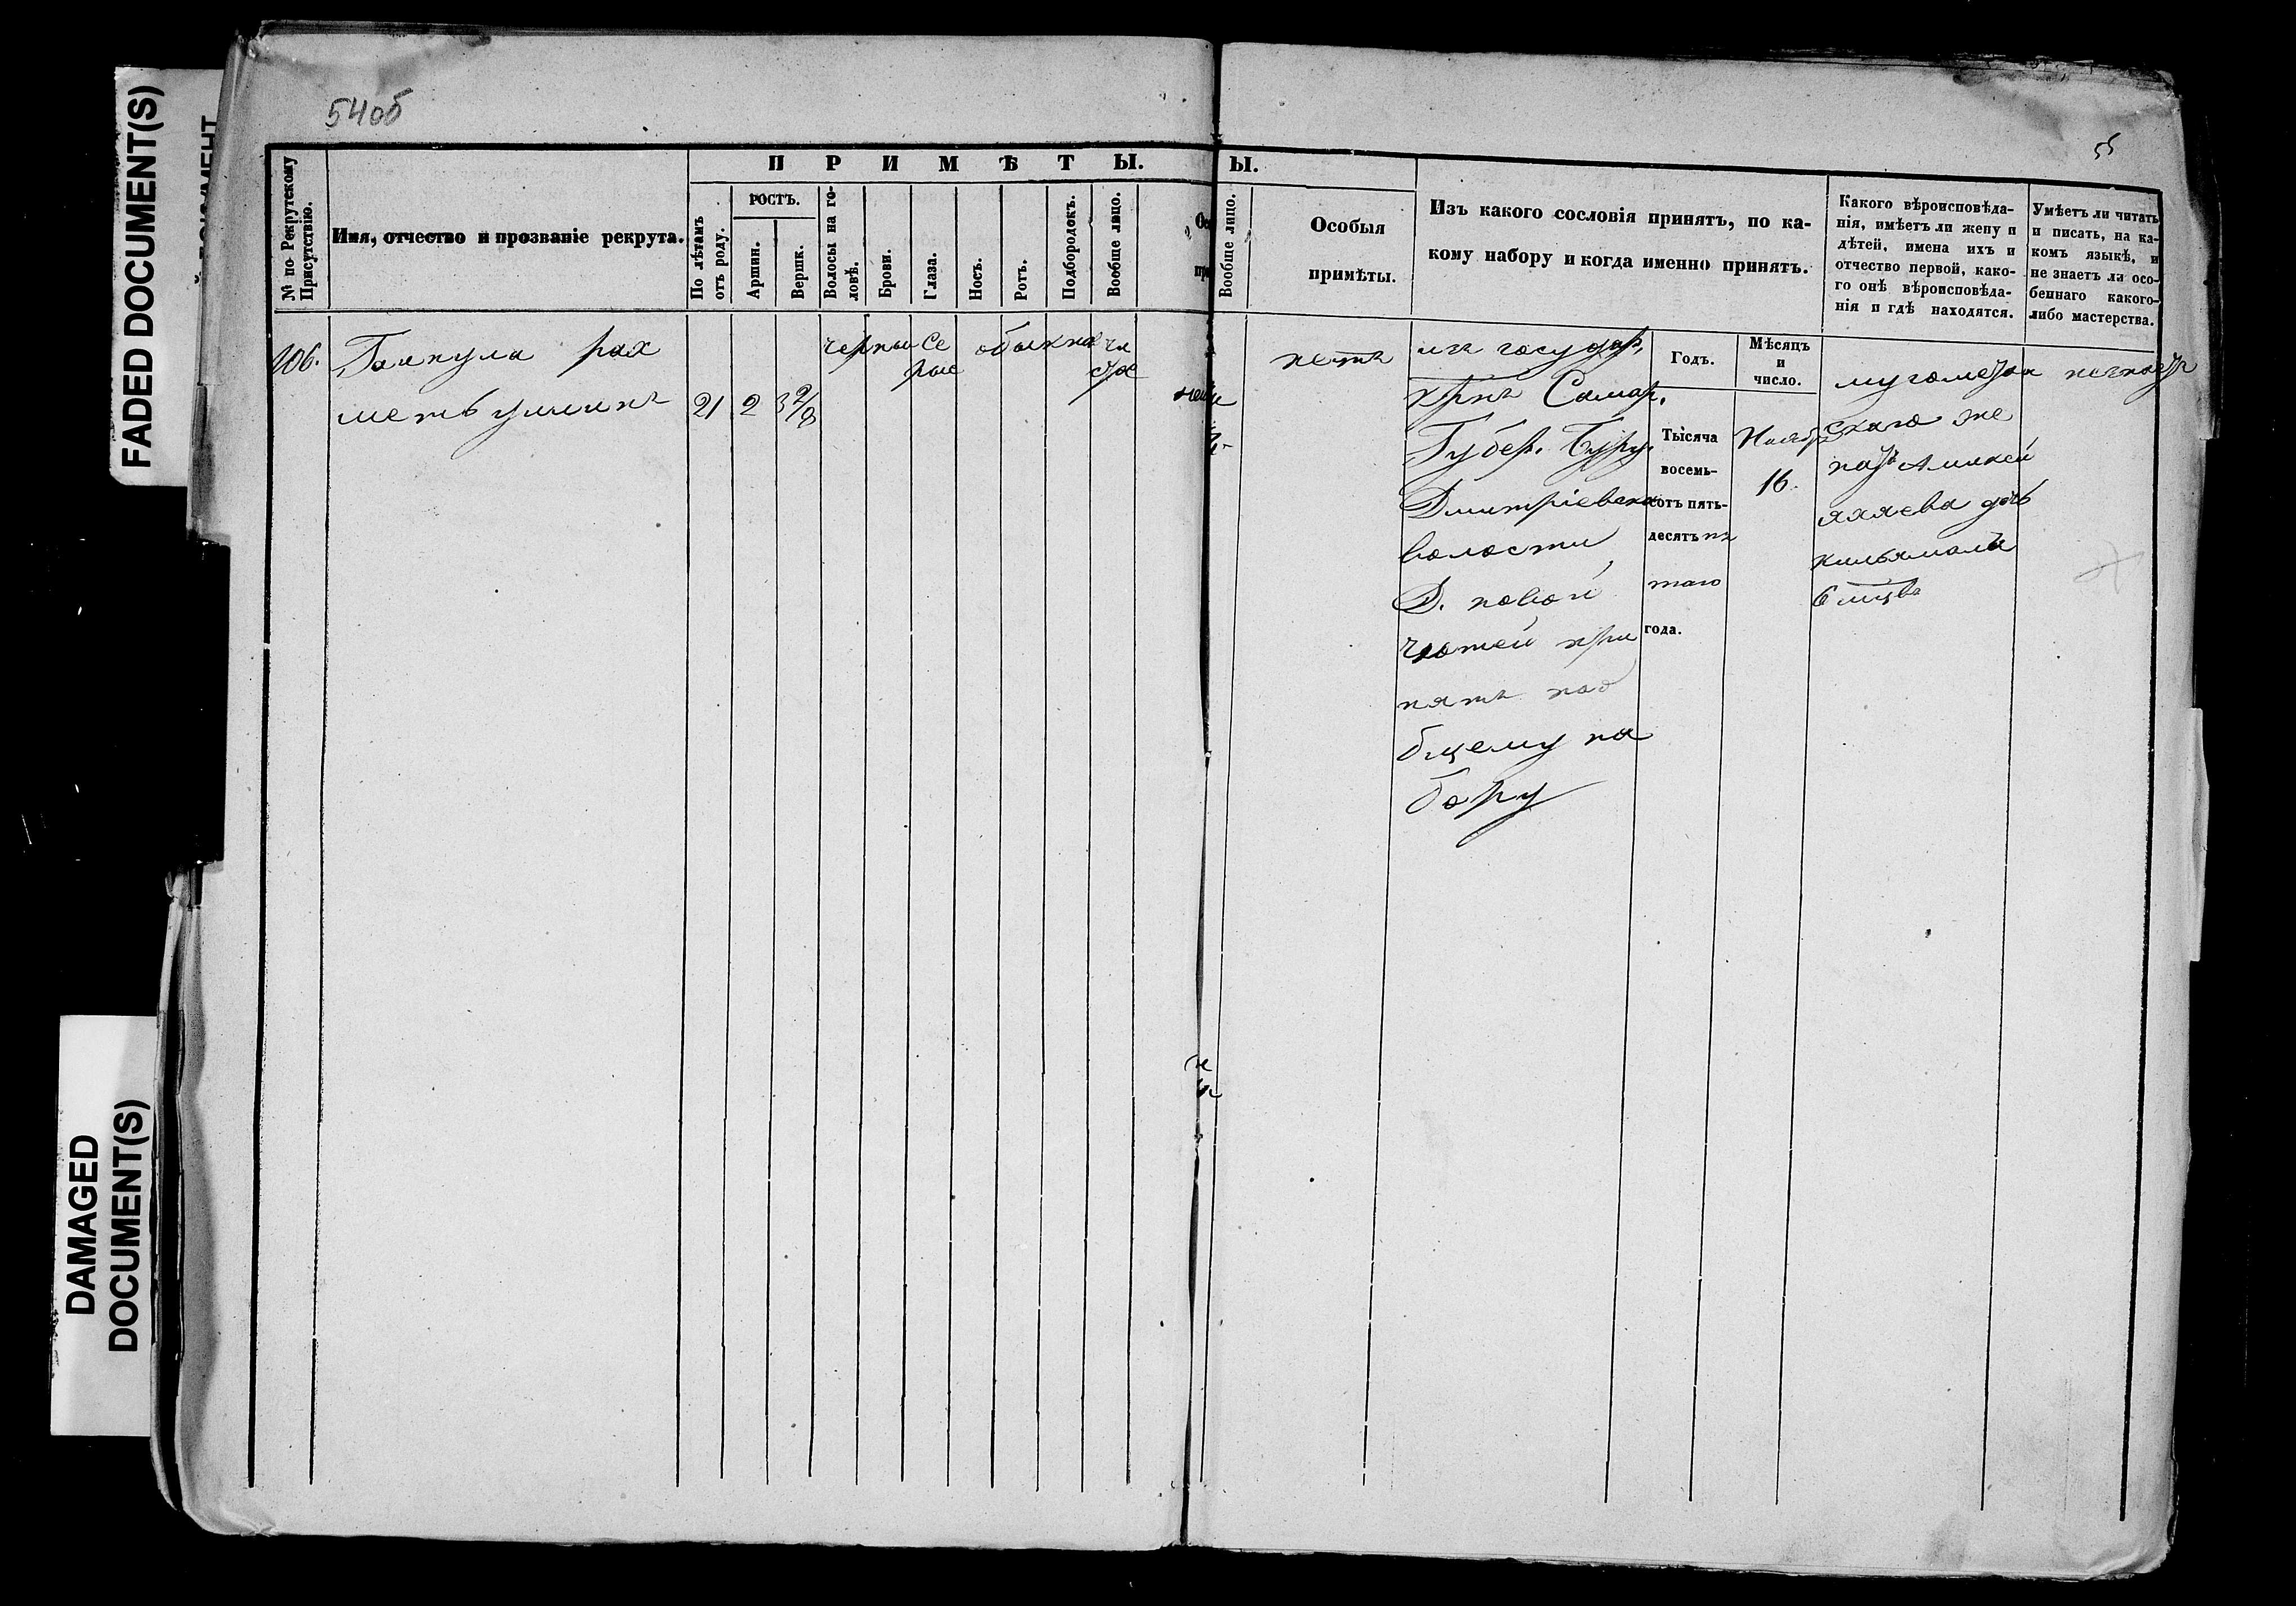 FADED DOCUMENT(S)
DAMAGED
DOCUMENT(S)
54об
55
№ по Рекрутскому
Присутствію.
Имя, отчество и прозваніе рекрута.
ПРИМѢТЫ.
По лѣтамъ
отъ роду.
РОСТЪ.
Аршин.
Вершк.
Волосы на го-
ловѣ.
Брови.
Глаза.
Носъ.
Ротъ.
Подбородокъ.
Вообще лицо.
Ы.
Вообще лицо.
Особыя
примѣты.
Изъ какого сословія принятъ, по ка-
кому набору и когда именно принятъ.
Какого вѣроисповѣда-
нія, имѣетъ ли жену и
дѣтей, имена ихъ и
отчество первой, како-
го онѣ вѣроисповѣда-
нія и гдѣ находятся.
Умѣетъ ли читать
и писать, на ка-
комъ языкѣ, и
не знаетъ ли осо-
беннаго какого-
либо мастерства.
106.
рах
метьуллинъ
21
2
3 2/8
черныи
се
рые
обыкнов
чи
стое
нетъ
изъ государ.
крнъ Самар.
Губер. Бугу.
Дмитріевской
волости
Д. новой
при
нятъ поо
бщему на
бору
Годъ.
Тысяча
восемь-
сотъ пять-
десятъ пя
таго
года.
Мѣсяцъ
и
число.
Ноября
16.
мугометан
скаго же
натъ
дочь
незнаетъ